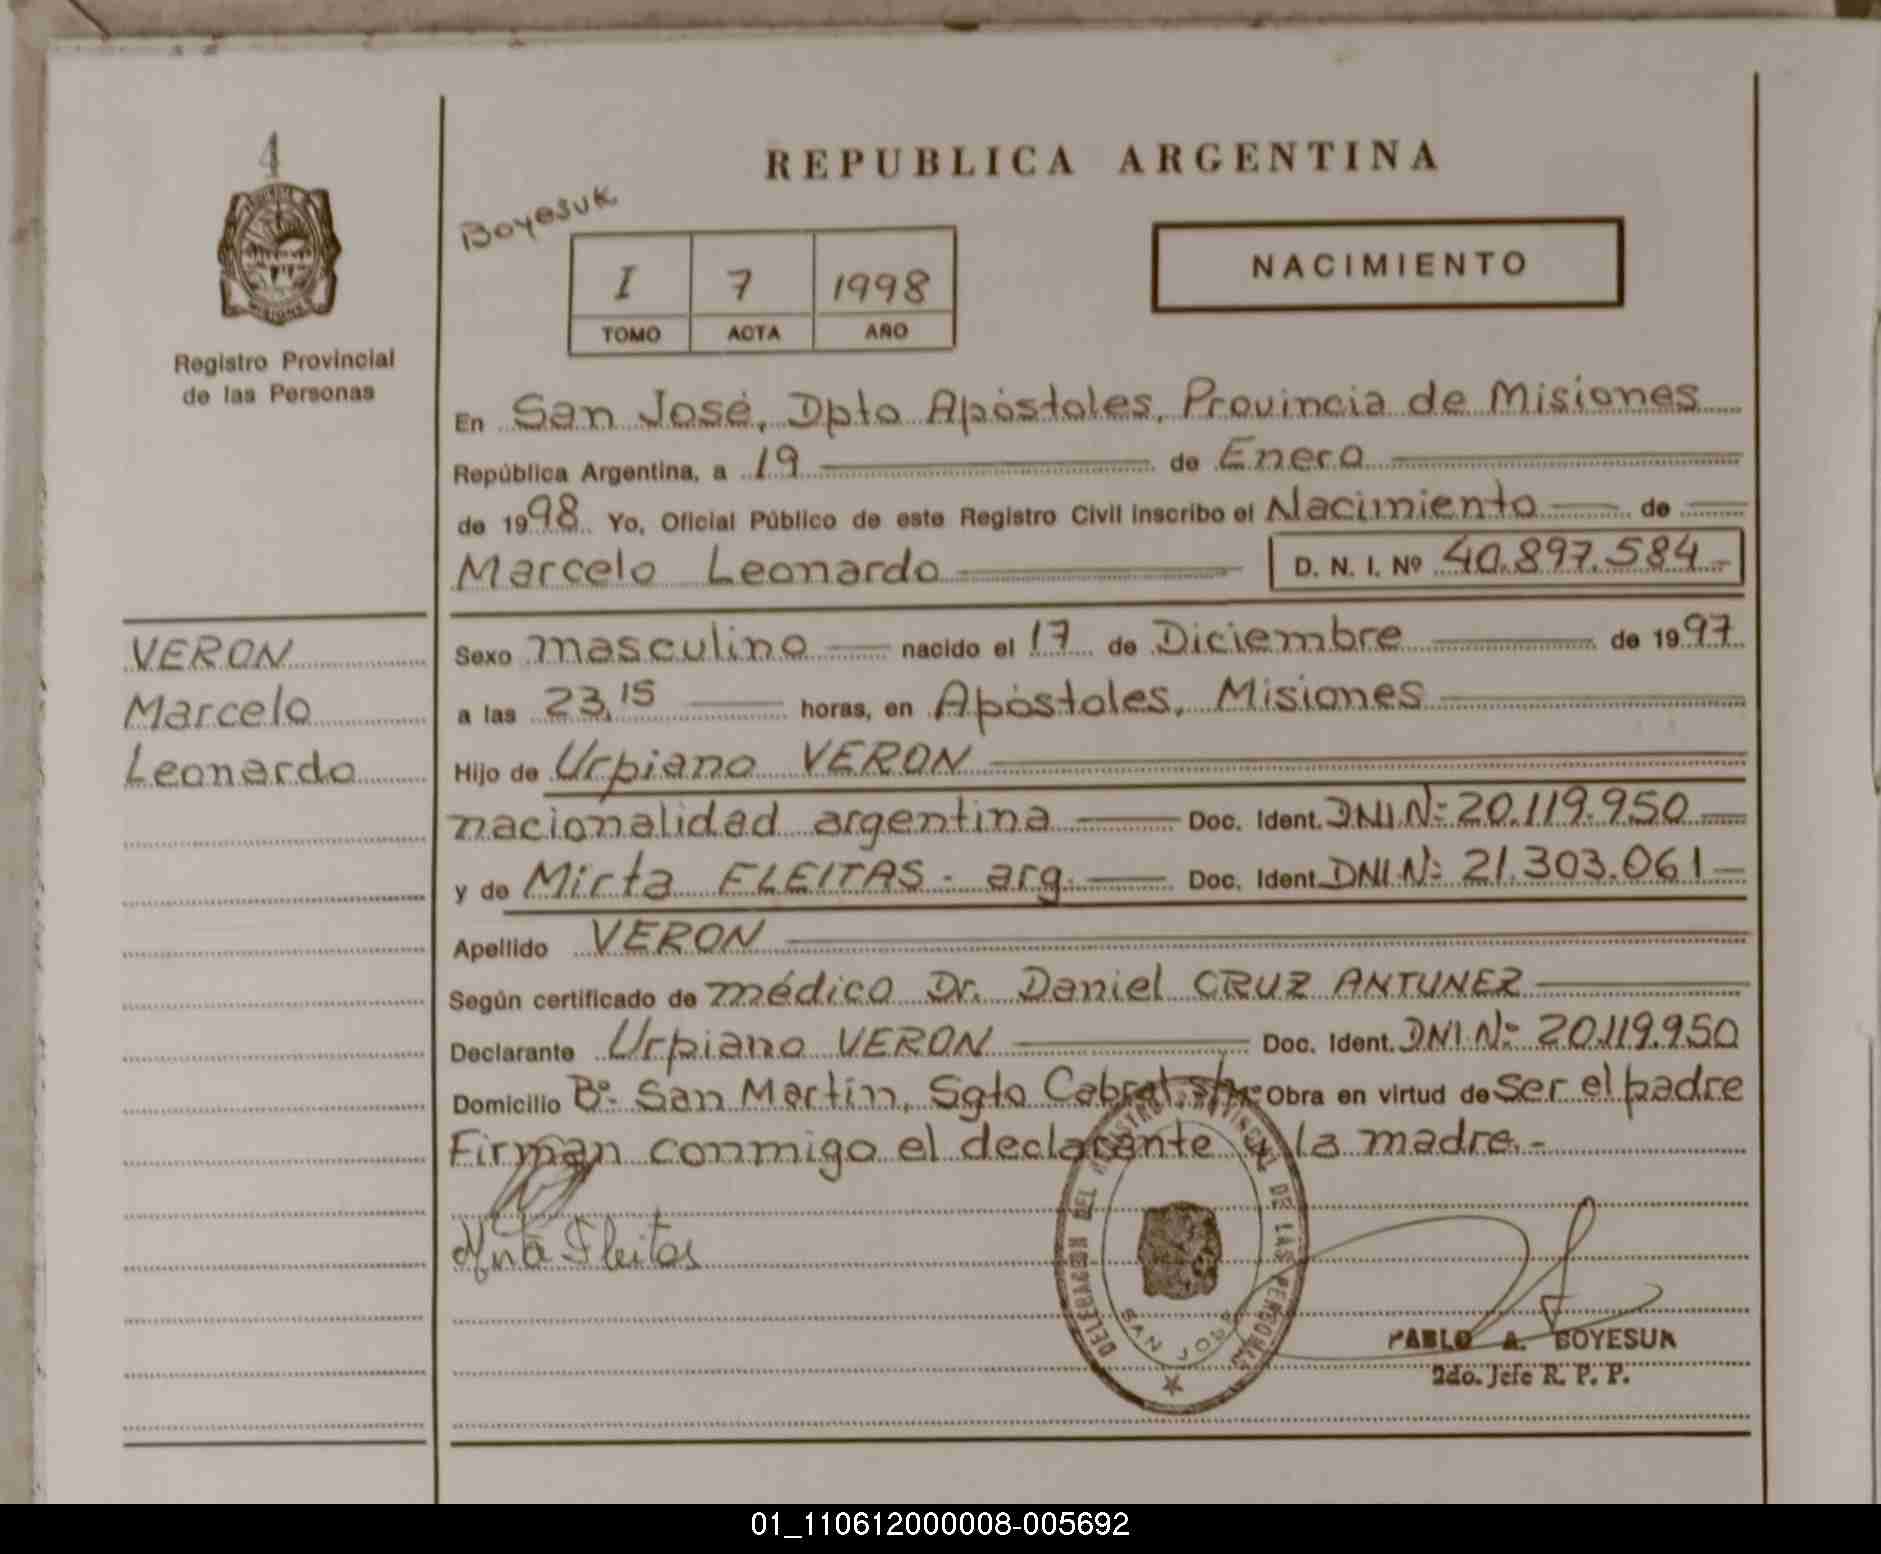 4
REPUBLICA ARGENTINA
Boyesuk
NACIMIENTO
I 7 1998
TOMO ACTA AÑO
Registro Provincial
de las Personas
En San José, Dpto Apóstoles, Provincia de Misiones
República Argentina, a 19 de Enero
de 1998 Yo, Oficial Público de este Registro Civil inscribo el Nacimiento de
Marcelo Leonardo D. N. I. Nº 40.897.584.-
VERON
Marcelo
Leonardo
Sexo masculino nacido el 17 de Diciembre de 1997
a las 23,15 horas, en Apóstoles, Misiones
Hijo de Urpiano VERON
nacionalidad argentina Doc. Ident. DNI.Nº 20.119.950
y de Mirta FLEITAS - arg. Doc. Ident. DNI.Nº 21.303.061
Apellido VERON
Según certificado de médico Dr. Daniel CRUZ ANTUNEZ
Declarante Urpiano VERON Doc. Ident. DNI.Nº 20.119.950
Domicilio Bº San Martín, Sgto Cabral s/nº Obra en virtud de ser el padre
Firman conmigo el declarante y la madre.-
Fleitas
DELEGACION DEL REGISTRO PROVINCIAL DE LAS PERSONAS
SAN JOSE
PABLO A. BOYESUK
2do. Jefe R. P. P.
01_110612000008-005692